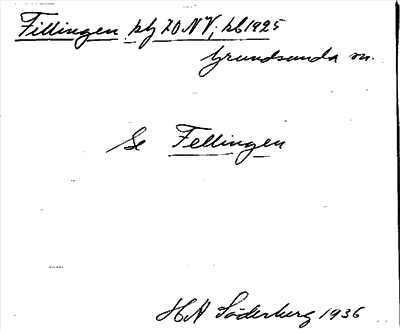 Fillingen kbl 70 NV, kb 1925
Grundsunda sn.
Se Fellingen
HA Söderberg 1936